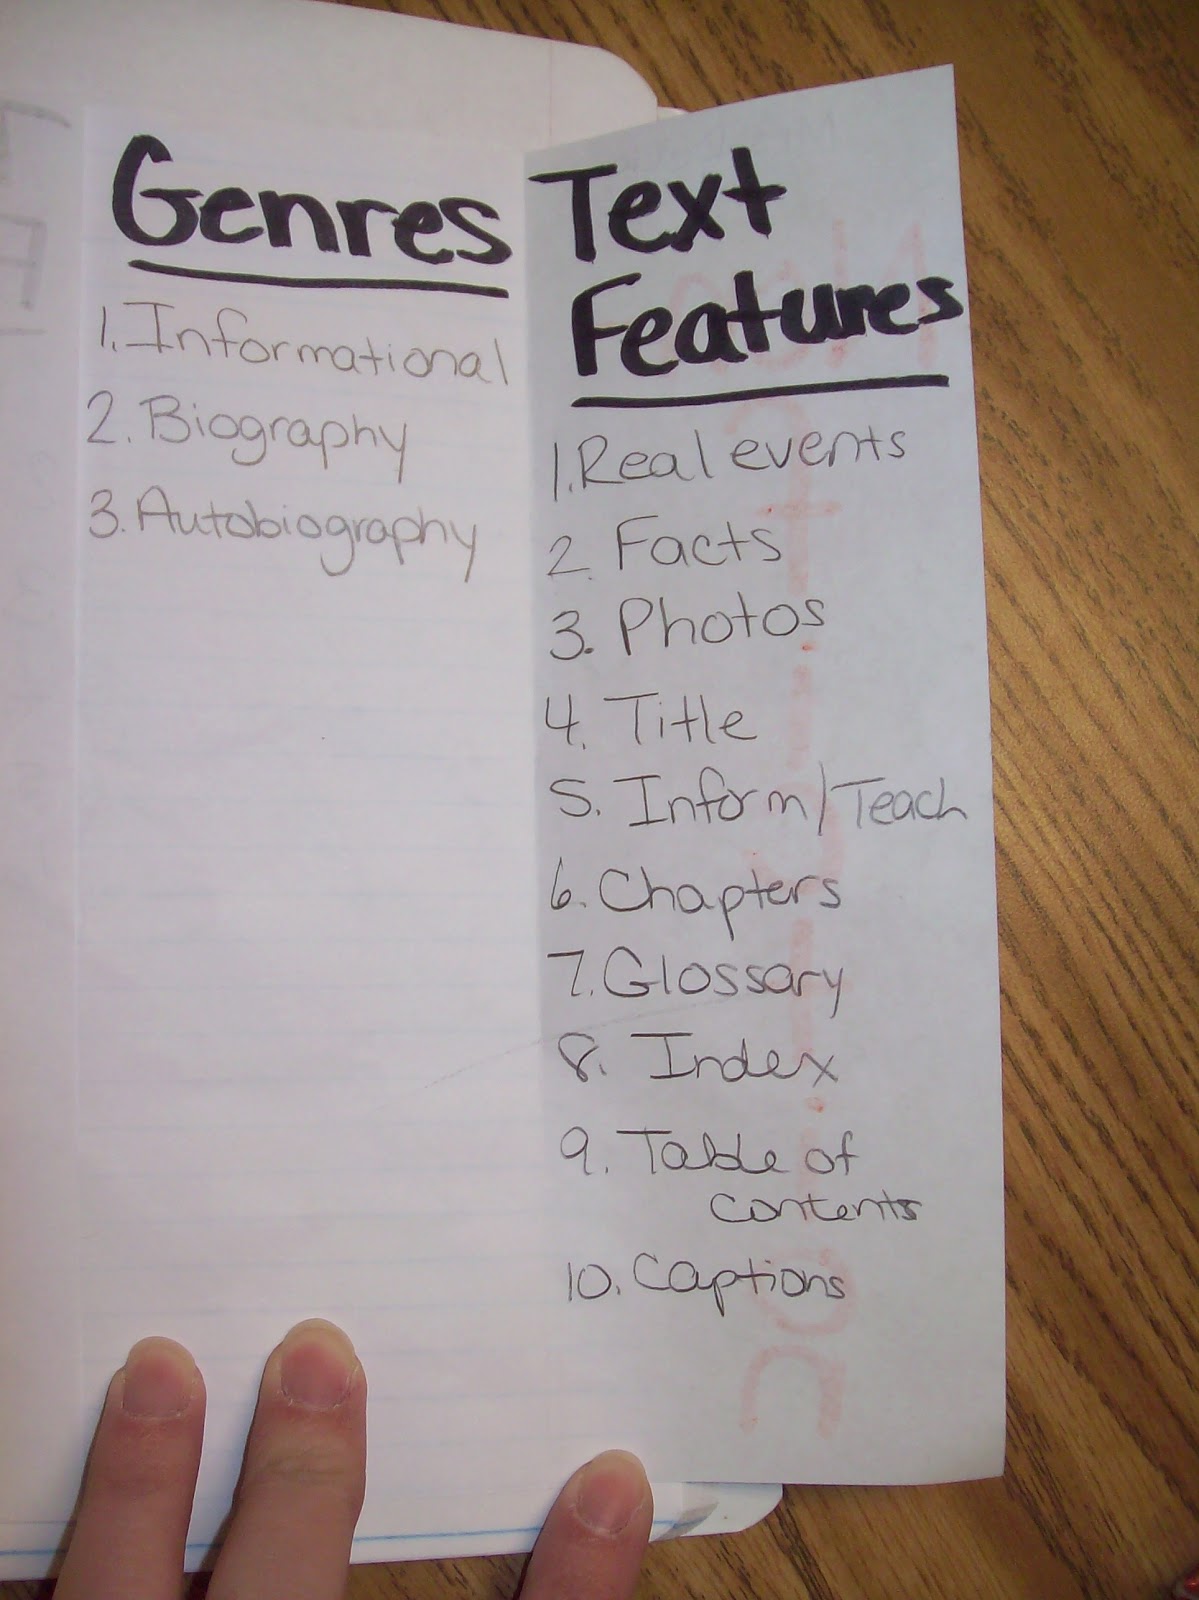 Genres
1. Informational
2. Biography
3. Autobiography
Text
Features
1. Real events
2. Facts
3. Photos
4. Title
5. Inform/Teach
6. Chapters
7. Glossary
8. Index
9. Table of
contents
10. Captions